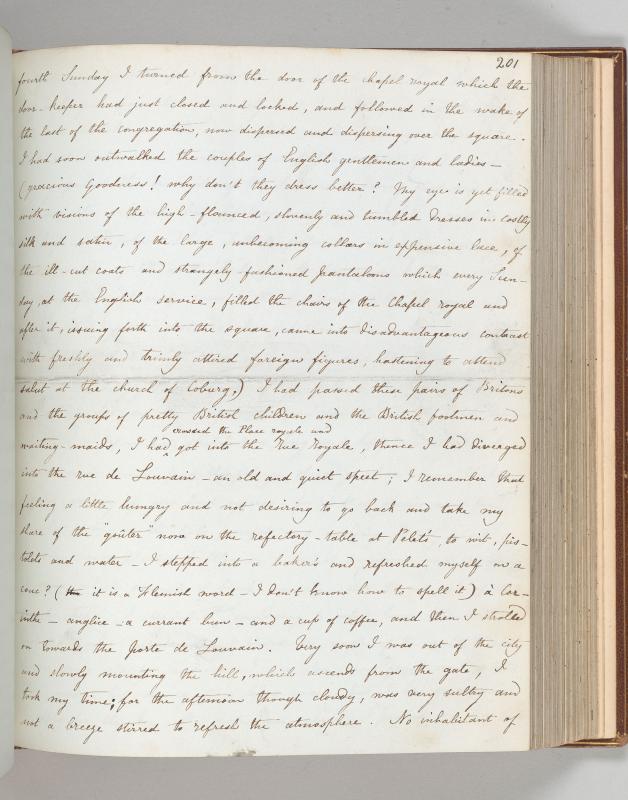 201
fourth Sunday I turned from the door of the chapel royal which the
door-keeper had just closed and locked, and followed in the wake of
the last of the congregation, now dispersed and dispersing over the square.
I had soon outwalked the couples of English gentlemen and ladies —
(gracious Goodness! why don't they dress better? My eye is yet filled
with visions of the high-flounced, slovenly and tumbled dresses in costly
silk and satin, of the large, unbecoming collars in expensive lace, of
the ill-cut coats and strangely-fashioned pantaloons which every Sun-
day, at the English service, filled the chairs of the chapel royal and
after it, issuing forth into the square, came into disadvantageous contrast
with freshly and trimly attired foreign figures, hastening to attend
salut at the church of Coburg.) I had passed these pairs of Britons
and the groups of pretty British children and the British footmen and
crossed the Place royale and
waiting-maids, I had ^ got into the rue royale, thence I had diverged
into the rue de Louvain — an old and quiet street; I remember that
feeling a little hungry and not desiring to go back and take my
share of the "goûter" now on the refectory-table at Pelet's, to wit, pis-
tolets and water — I stepped into a baker's and refreshed myself on a
couc? ( it is a Flemish word — I don't know how to spell it) à Cor-
inthe — anglice — a currant bun — and a cup of coffee, and then I strolled
on towards the porte de Louvain. Very soon I was out of the city
and slowly mounting the hill, which ascends from the gate, I
took my time; for the afternoon though cloudy, was very sultry and
not a breeze stirred to refresh the atmosphere. No inhabitant of